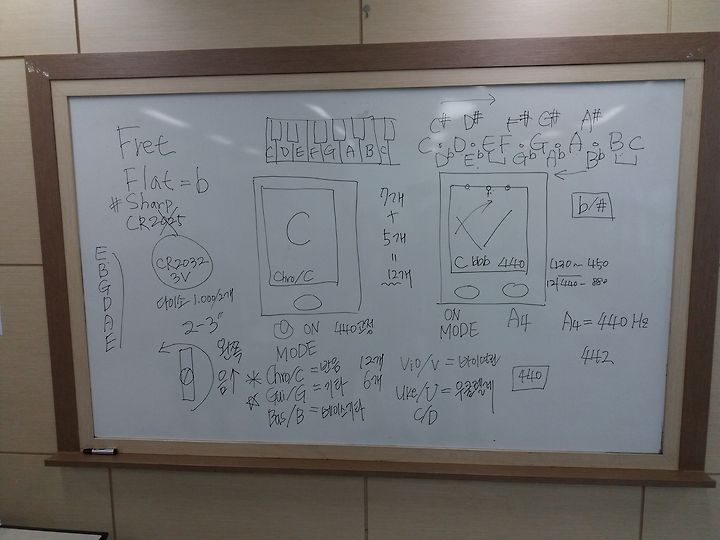 Fret
Flat = b
# Sharp
CR2025
CR2032
3V
다이소 1.000/2개
2-3"
E
B
G
D
A
E
왼쪽
음↑
C D E F G A B C
C
Chro/C
ON 440고정
MODE
7개
+
5개
"
12개
* Chro/C = 반음 12개
☆ Gui/G = 기타 6개
Bas/B = 베이스기타
Vio/V = 바이올린
Uke/U = 우쿨렐레
C/D
440
C# D# F# G# A#
C D E F G A B C
Db Eb Gb Ab Bb
C bbb 440
ON
MODE
A4
b/#
430~450
A4 = 440 Hz
442